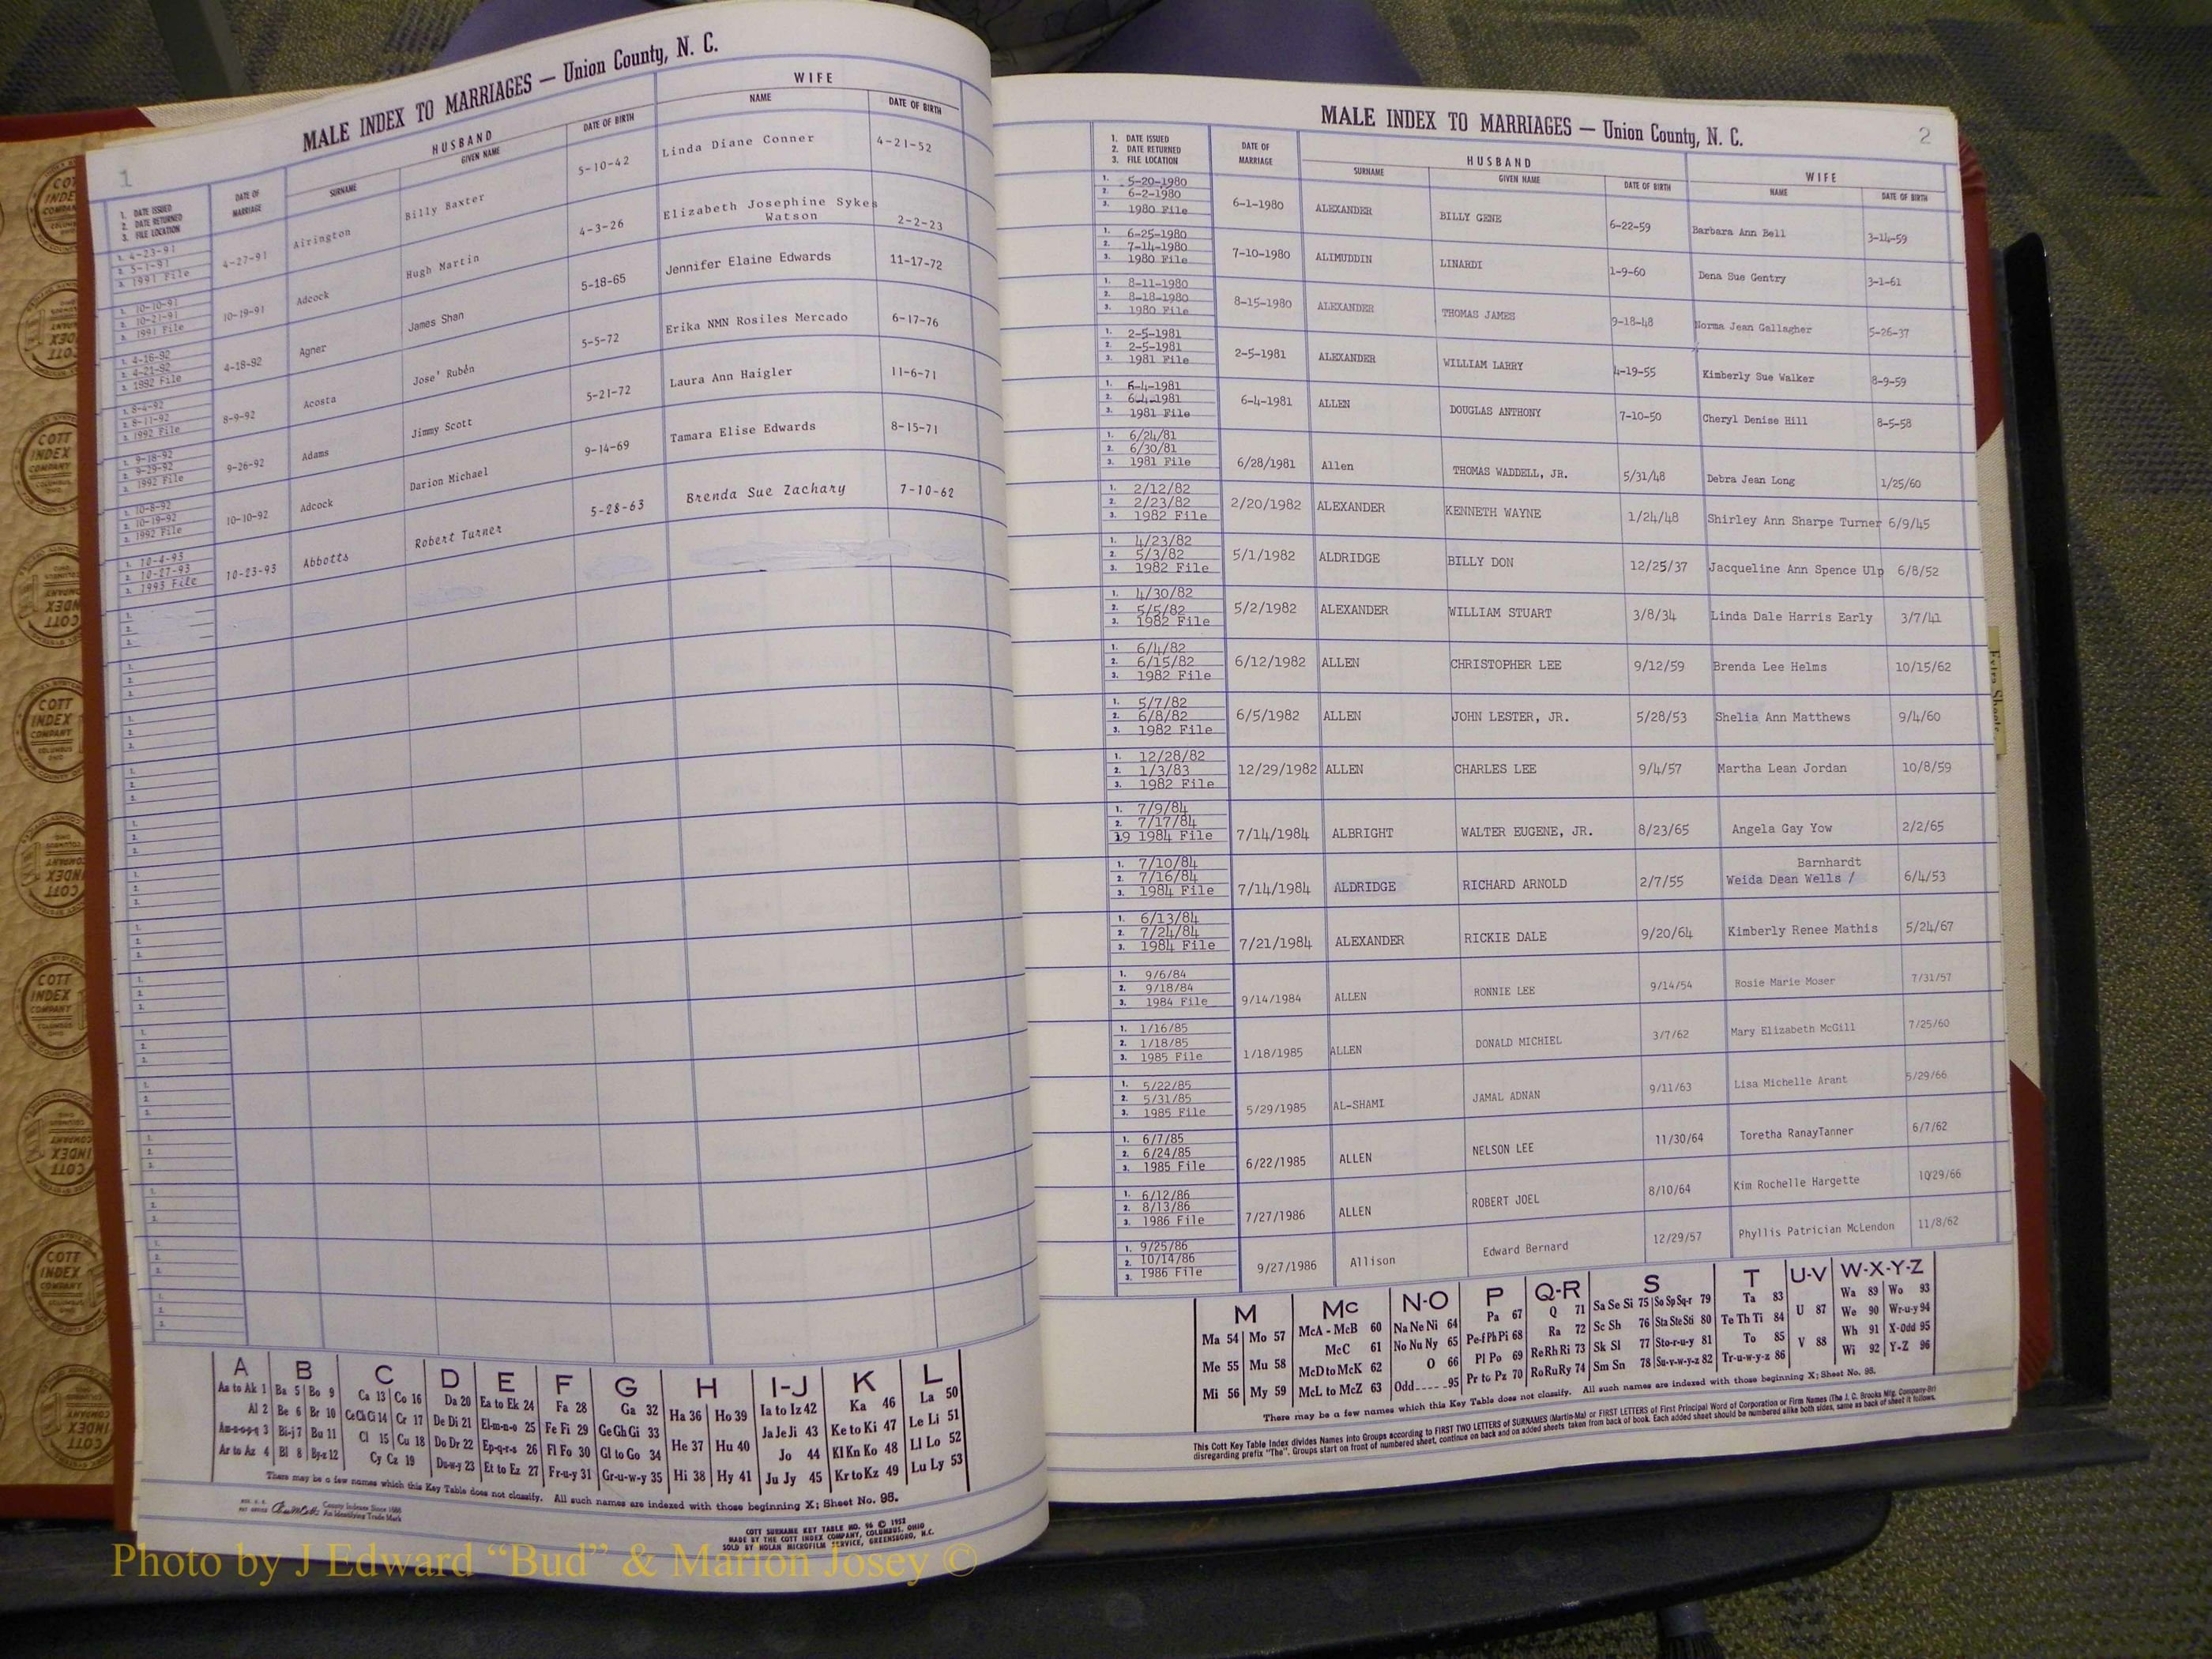 1
MALE INDEX TO MARRIAGES — Union County, N. C.
1. DATE ISSUED
2. DATE RETURNED
3. FILE LOCATION
DATE OF MARRIAGE
HUSBAND
SURNAME GIVEN NAME DATE OF BIRTH
WIFE
NAME DATE OF BIRTH
1. 4-23-91
2. 5-1-91
3. 1991 File
4-27-91 Airington Billy Baxter 5-10-42 Linda Diane Conner 4-21-52
1. 10-10-91
2. 10-21-91
3. 1991 File
10-19-91 Adcock Hugh Martin 4-3-26 Elizabeth Josephine Sykes
Watson 2-2-23
1. 4-16-92
2. 4-21-92
3. 1992 File
4-18-92 Agner James Shan 5-18-65 Jennifer Elaine Edwards 11-17-72
1. 8-4-92
2. 8-11-92
3. 1992 File
8-9-92 Acosta Jose' Rubén 5-5-72 Erika NMN Rosiles Mercado 6-17-76
1. 9-18-92
2. 9-29-92
3. 1992 File
9-26-92 Adams Jimmy Scott 5-21-72 Laura Ann Haigler 11-6-71
1. 10-8-92
2. 10-19-92
3. 1992 File
10-10-92 Adcock Darion Michael 9-14-69 Tamara Elise Edwards 8-15-71
1. 10-4-93
2. 10-27-93
3. 1993 File
10-23-93 Abbotts Robert Turner 5-28-63 Brenda Sue Zachary 7-10-62
A B C D E F G H I-J K L
Aa to Ak 1 Ba 5 Bo 9 Ca 13 Co 16 Da 20 Ea to Ek 24 Fa 28 Ga 32 Ha 36 Ho 39 Ia to Iz 42 Ka 46 La 50
Al 2 Be 6 Br 10 Ce Ch Ci 14 Cr 17 De Di 21 El-m-n-o 25 Fe Fi 29 Ge Gh Gi 33 He 37 Hu 40 Ja Je Ji 43 Ke to Ki 47 Le Li 51
Am-n-o-p-q 3 Bi-j 7 Bu 11 Cl 15 Cu 18 Do Dr 22 Ep-q-r-s 26 Fl Fo 30 Gl to Go 34 Hi 38 Hy 41 Jo 44 Kl Kn Ko 48 Ll Lo 52
Ar to Az 4 Bl 8 By-z 12 Cy Cz 19 Du-w-y 23 Et to Ez 27 Fr-u-y 31 Gr-u-w-y 35 Ju Jy 45 Kr to Kz 49 Lu Ly 53
There may be a few names which this Key Table does not classify. All such names are indexed with those beginning X; Sheet No. 95.
County Indexes Since 1888
An Identifying Trade Mark
COTT SURNAME KEY TABLE NO. 96 © 1952
MADE BY THE COTT INDEX COMPANY, COLUMBUS, OHIO
SOLD BY NOLAN MICROFILM SERVICE, GREENSBORO, N.C.
2
MALE INDEX TO MARRIAGES — Union County, N. C.
1. DATE ISSUED
2. DATE RETURNED
3. FILE LOCATION
DATE OF MARRIAGE
HUSBAND
SURNAME GIVEN NAME DATE OF BIRTH
WIFE
NAME DATE OF BIRTH
1. 5-20-1980
2. 6-2-1980
3. 1980 File
6-1-1980 ALEXANDER BILLY GENE 6-22-59 Barbara Ann Bell 3-14-59
1. 6-25-1980
2. 7-14-1980
3. 1980 File
7-10-1980 ALIMUDDIN LINARDI 1-9-60 Dena Sue Gentry 3-1-61
1. 8-11-1980
2. 8-18-1980
3. 1980 File
8-15-1980 ALEXANDER THOMAS JAMES 9-18-48 Norma Jean Gallagher 5-26-37
1. 2-5-1981
2. 2-5-1981
3. 1981 File
2-5-1981 ALEXANDER WILLIAM LARRY 4-19-55 Kimberly Sue Walker 8-9-59
1. 6-4-1981
2. 6-4-1981
3. 1981 File
6-4-1981 ALLEN DOUGLAS ANTHONY 7-10-50 Cheryl Denise Hill 8-5-58
1. 6/24/81
2. 6/30/81
3. 1981 File
6/28/1981 Allen THOMAS WADDELL, JR. 5/31/48 Debra Jean Long 1/25/60
1. 2/12/82
2. 2/23/82
3. 1982 File
2/20/1982 ALEXANDER KENNETH WAYNE 1/24/48 Shirley Ann Sharpe Turner 6/9/45
1. 4/23/82
2. 5/3/82
3. 1982 File
5/1/1982 ALDRIDGE BILLY DON 12/25/37 Jacqueline Ann Spence Ulp 6/8/52
1. 4/30/82
2. 5/5/82
3. 1982 File
5/2/1982 ALEXANDER WILLIAM STUART 3/8/34 Linda Dale Harris Early 3/7/41
1. 6/4/82
2. 6/15/82
3. 1982 File
6/12/1982 ALLEN CHRISTOPHER LEE 9/12/59 Brenda Lee Helms 10/15/62
1. 5/7/82
2. 6/8/82
3. 1982 File
6/5/1982 ALLEN JOHN LESTER, JR. 5/28/53 Shelia Ann Matthews 9/4/60
1. 12/28/82
2. 1/3/83
3. 1982 File
12/29/1982 ALLEN CHARLES LEE 9/4/57 Martha Lean Jordan 10/8/59
1. 7/9/84
2. 7/17/84
19 1984 File
7/14/1984 ALBRIGHT WALTER EUGENE, JR. 8/23/65 Angela Gay Yow 2/2/65
1. 7/10/84
2. 7/16/84
3. 1984 File
Barnhardt
7/14/1984 ALDRIDGE RICHARD ARNOLD 2/7/55 Weida Dean Wells / 6/4/53
1. 6/13/84
2. 7/24/84
3. 1984 File
7/21/1984 ALEXANDER RICKIE DALE 9/20/64 Kimberly Renee Mathis 5/24/67
1. 9/6/84
2. 9/18/84
3. 1984 File
9/14/1984 ALLEN RONNIE LEE 9/14/54 Rosie Marie Moser 7/31/57
1. 1/16/85
2. 1/18/85
3. 1985 File
1/18/1985 ALLEN DONALD MICHIEL 3/7/62 Mary Elizabeth McGill 7/25/60
1. 5/22/85
2. 5/31/85
3. 1985 File
5/29/1985 AL-SHAMI JAMAL ADNAN 9/11/63 Lisa Michelle Arant 5/29/66
1. 6/7/85
2. 6/24/85
3. 1985 File
6/22/1985 ALLEN NELSON LEE 11/30/64 Toretha RanayTanner 6/7/62
1. 6/12/86
2. 8/13/86
3. 1986 File
7/27/1986 ALLEN ROBERT JOEL 8/10/64 Kim Rochelle Hargette 10/29/66
1. 9/25/86
2. 10/14/86
3. 1986 File
9/27/1986 Allison Edward Bernard 12/29/57 Phyllis Patrician McLendon 11/8/62
M Mc N-O P Q-R S T U-V W-X-Y-Z
Ma 54 Mo 57 McA - McB 60 Na Ne Ni 64 Pa 67 Q 71 Sa Se Si 75 So Sp Sq-r 79 Ta 83 U 87 Wa 89 Wo 93
Me 55 Mu 58 McC 61 No Nu Ny 65 Pe-f Ph Pi 68 Ra 72 Sc Sh 76 Sta Ste Sti 80 Te Th Ti 84 V 88 We 90 Wr-u-y 94
Mi 56 My 59 McD to McK 62 O 66 Pl Po 69 Re Rh Ri 73 Sk Sl 77 Sto-r-u-y 81 To 85 Wh 91 X-Odd 95
McL to McZ 63 Odd 95 Pr to Pz 70 Ro Ru Ry 74 Sm Sn 78 Su-v-w-y-z 82 Tr-u-w-y-z 86 Wi 92 Y-Z 96
There may be a few names which this Key Table does not classify. All such names are indexed with those beginning X; Sheet No. 95.
This Cott Key Table Index divides Names into Groups according to FIRST TWO LETTERS of SURNAMES (Martin-Ma) or FIRST LETTERS of First Principal Word of Corporation or Firm Names (The J. C. Brooks Mfg. Company-Br)
disregarding prefix "The". Groups start on front of numbered sheet, continue on back and on added sheets taken from back of book. Each added sheet should be numbered alike both sides, same as back of sheet it follows.
COTT
INDEX
COMPANY
Photo by J Edward “Bud” & Marion Josey ©